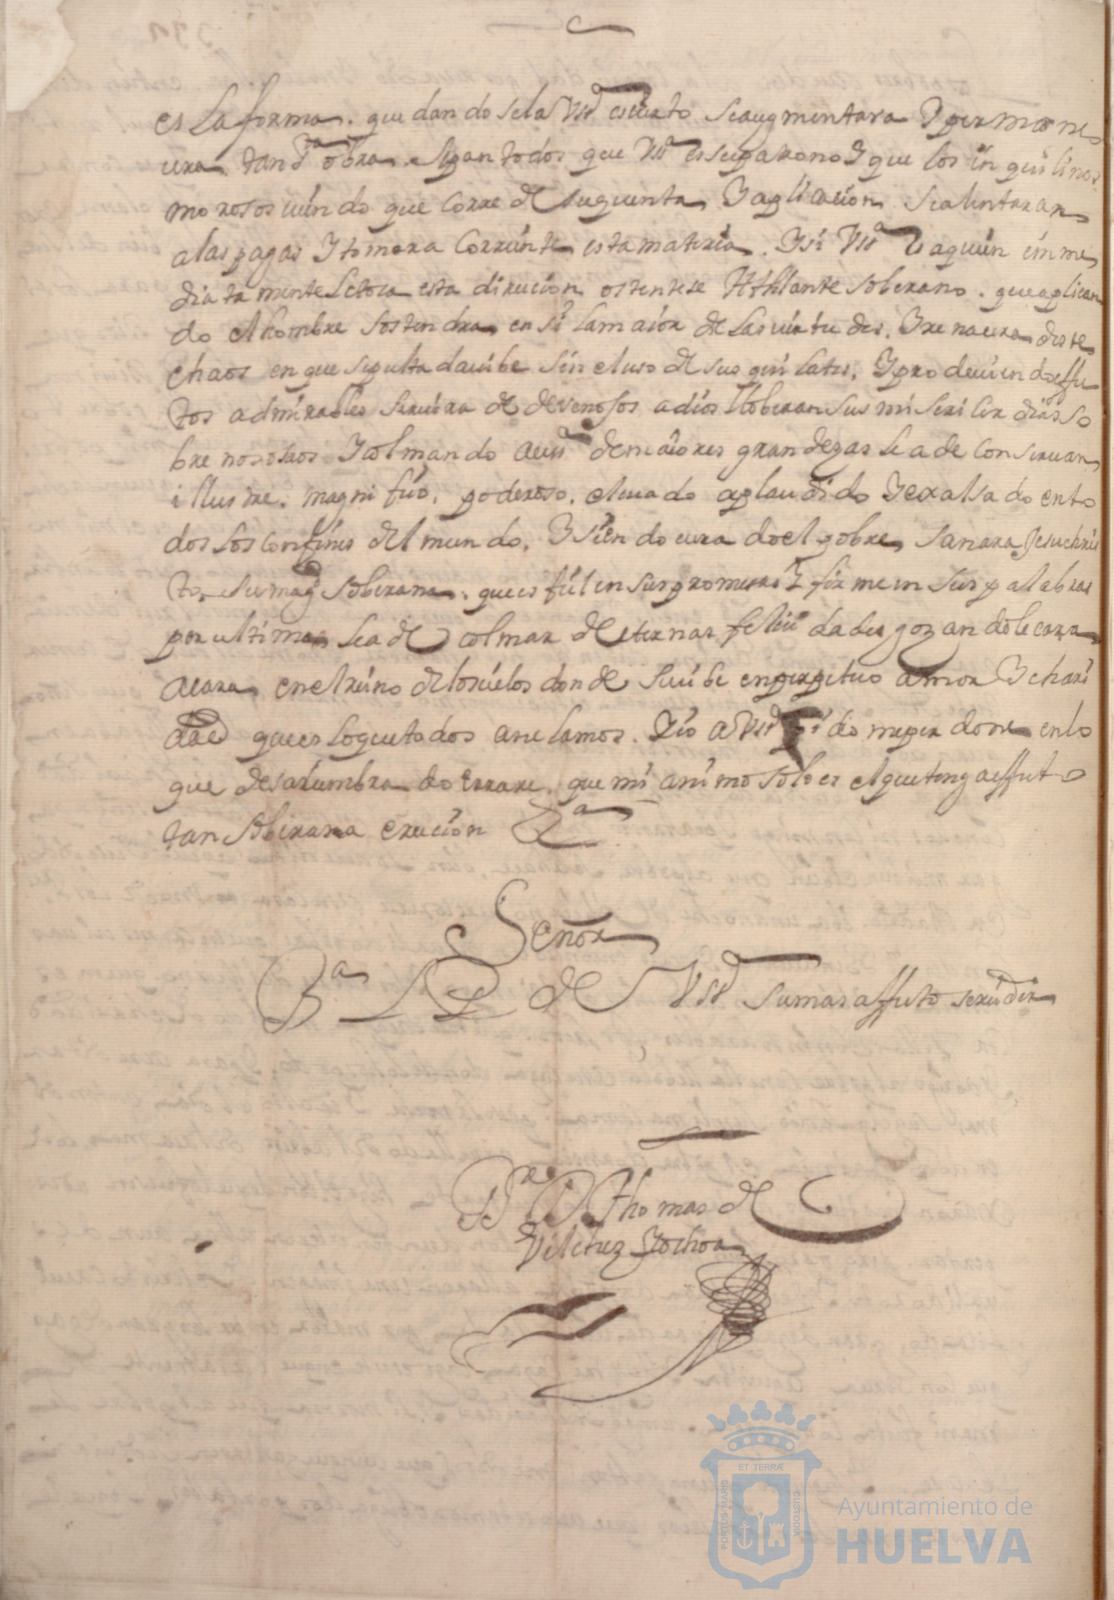 es la forma. que dandosela Vsª es cierto se augmentara Y permane
cera tan Sª obra. sepan todos que Vsª es su patrono Y que los in quilinos
morosos viendo que corre de su quenta Y aplicacion se alintaran
a las pagas Y tomara corriente esta materia. Y si Vsª es a quien inme
diata mente le toca esta direccion ostentese Athlante soberano. que aplican
do el hombre sostendra en si la maior de las virtudes. Y renacera deste
chaos en que sepultada vibe sin el uso de sus quilates. Y produciendo effe
tos admirables servira de de venosos a dios lloberan sus misericordias so
bre nosotros Y colmando a Vsª de maiores grandezas le a de conservar
illustre. magnifico. poderoso. elevado aplaudido Y exalsado en to
dos los confines del mundo. Y siendo cura do el pobre sanara Jesuchris
to su magd soberana. que es fiel en sus promesas Y firme en sus palabras
por ultimo le a de colmar de eternas felicidades gozandole cara
a cara en el reino de los cielos donde se vibe en perpetuo amor Y chari
dad que es lo que todos anelamos. Yo a Vsª pido me perdone en lo
que desalumbrado errare. que mi animo solo es el que tenga effeto
tan soberana ereccion Va
Señor
Ba L P de Vsª su mas affecto servidor
Br D Thomas de
Vilchez Yochoa
ET TERRÆ
PORTUS MARIS
CUSTODIA
Ayuntamiento de
HUELVA